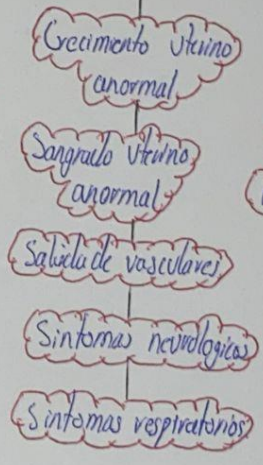 Crecimiento Uterino
anormal
Sangrado Uterino
anormal
Salida de vasculares
Sintomas neurologicos
Sintomas respiratorios